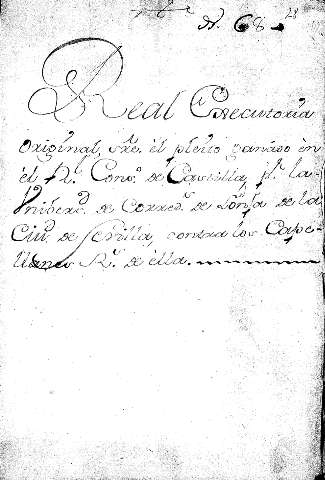 N. 68.
Real Executoria
original, sre. el pleito ganado en
el Rl. Consº. de Castilla, pr. la
Vniberd. de Corredˢ. de Lonja de la
Ciud. de Sevilla, contra los Cape-
llanes Rs. de ella.